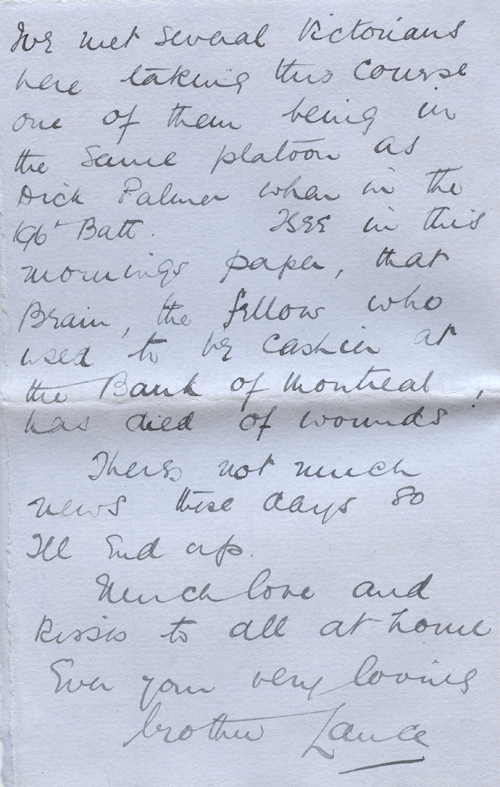 Ive met several Victorians
here taking this course
one of them being in
the same platoon as
Dick Palmer when in the
196th Batt. I see in this
mornings paper, that
Brain, the fellow who
used to be cashier at
the Bank of Montreal,
has died of wounds.
Theres not much
news these days so
Ill end up.
Much love and
kisses to all at home
Ever your very loving
brother Lance